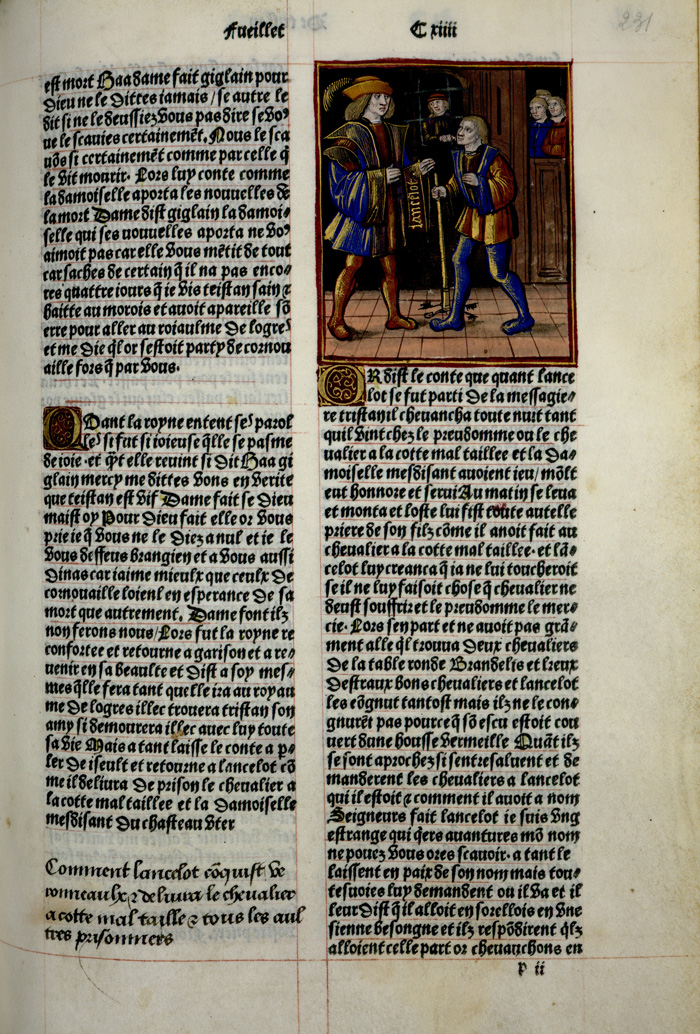 Fueillet C xiiii
231
est mort Haa dame fait giglain pour
dieu ne le dittes iamais / se autre le
dit si ne le deussiez vous pas dire se vo⁹
ue le scauies certainemēt. Nous le sca
uōs si certainemēt comme par celle q̄
le vit mourir. Lors luy conte comme
la damoiselle aporta les nouuelles de
la mort Dame dist giglain la damoi⸗
selle qui ses nouuelles aporta ne vo⁹
aimoit pas car elle vous mētit de tout
car saches de certain q̄ il na pas enco⸗
res quattre iours q̄ ie vis tristan sain ⁊
haitte au morois et auoit apareille sō
erre pour aller au roiaulme de logres
et me die q̄l or sestoit party de cornou
aille fors q̄ par vous.
Quant la royne entent ses parol
les si fut si ioieuse q̄lle se pasme
de ioie . et q̄t elle reuint si dit Haa gi
glain mercy me dittes vous en verite
que tristan est vif Dame fait se dieu
maist oy Pour dieu fait elle or vous
prie ie q̄ vous ne le diez a nul et ie le
vous deffeus brangien et a vous aussi
dinas car iaime mieulx que ceulx de
cornouaille loient en esperance de sa
mort que autrement. Dame font ilz
non ferons nous / Lors fut la royne re
confortee et retourne a garison et a re⸗
uenir en sa beaulte et dist a soy mes⸗
mes q̄lle fera tant quelle ira au royau
me de logres illec trouera tristan son
amy si demourera illec auec luy toute
sa vie Mais a tant laisse le conte a p⸗
ler de iseult et retourne a lancelot cō
me il deliura de prison le cheualier a
la cotte mal taillee et la damoiselle
mesdisant du chasteau vter
Comment lancelot cōquist de
ronneaulx ⁊ deliura le cheualier
a cotte mal taille ⁊ tous les aul
tres prisonniers
lancelot
OR dist le conte que quant lance
lot se fut parti de la messagie⸗
re tristan il cheuancha toute nuit tant
quil vint chez le preudomme ou le che
ualier a la cotte mal taillee et la da⸗
moiselle mesdisant auoient ieu / mōlt
eut honnore et serui Au matin se leua
et monta et loste lui fist toute autelle
priere de son filz cōme il anoit fait au
cheualier a la cotte mal taillee . et lā⸗
celot luy creanca q̄ ia ne lui toucheroit
se il ne luy faisoit chose q̄ cheualier ne
deust souffrir et le preudomme le mer⸗
cie . Lors sen part et ne auoit pas grā⸗
ment alle q̄l trouua deux cheualiers
de la table ronde Brandelis et keux
destraux bons cheualiers et lancelot
les cōgnut tantost mais ilz ne le con⸗
gnurēt pas pource q̄ sō escu estoit cou
uert dune housse vermeille Quāt ilz
se sont aprochez si sentresaluent et de
manderent les cheualiers a lancelot
qui il estoit ⁊ comment il auoit a nom
Seigneurs fait lancelot ie suis vng
estrange qui q̄ers auantures mō nom
ne pouez vous ores scauoir . a tant le
laissent en paix de son nom mais tou⸗
tesuoies luy demandent ou il va et il
leur dist q̄ il alloit en sorellois en vne
sienne besongne et ilz respōdirent q̄lz
alloient celle part or cheuauchons en
p ii